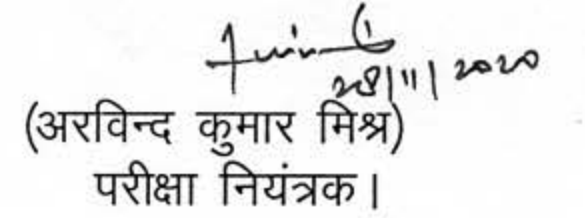 28/11/2020
(अरविन्द कुमार मिश्र)
परीक्षा नियंत्रक।